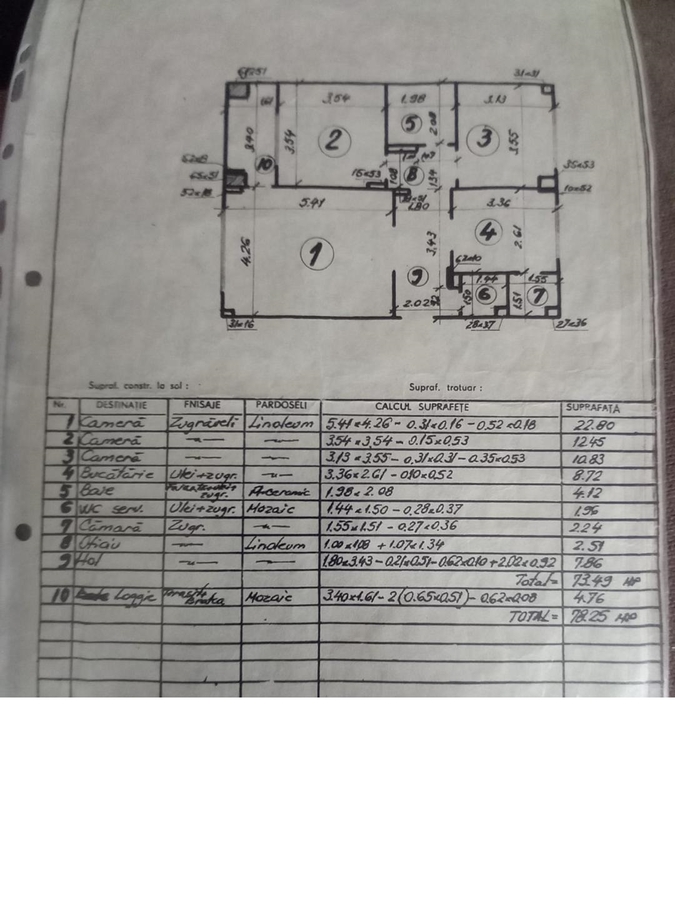 64×51
31×31
3.54
1.98
3.13
2
5
3
3.40
3.54
2.08
3.55
10
8
52×18
5.41
1.80
3.36
1
4.26
3.43
4
2.61
9
62×10
1.44
1.55
2.02
1.50
6
1.51
7
31×16
28×37
27×36
35×53
10×52
15×53
1.34
Supraf. constr. la sol :
Supraf. trotuar :
Nr. DESTINAȚIE FNISAJE PARDOSELI CALCUL SUPRAFEȚE SUPRAFAȚA
1 Cameră Zugrăveli Linoleum 5.41×4.26 - 0.31×0.16 - 0.52×0.18 22.80
2 Cameră —"— —"— 3.54×3,54 - 0.15×0.53 12.45
3 Cameră —"— —"— 3.13×3,55 - 0,31×0.31 - 0.35×0.53 10.83
4 Bucătărie Ulei+zugr. —"— 3.36×2.61 - 0.10×0,52 8.72
5 Baie zugr. 1.98×2.08 4.12
6 WC serv. Ulei+zugr. Mozaic 1.44×1.50 - 0,28×0.37 1,96
7 Cămară Zugr. —"— 1.55×1.51 - 0,27×0,36 2.24
8 Oficiu —"— Linoleum 1.00×1,08 + 1.07×1.34 2.51
9 Hol —"— —"— 1.80×3.43 - 0.21×0.51 - 0.62×0.10 + 2.02×0.92 7.86
Total = 73.49 MP
10 Loggie Mozaic 3.40×1.61 - 2(0.65×0,51) - 0.62×0.08 4.76
TOTAL = 78.25 MP